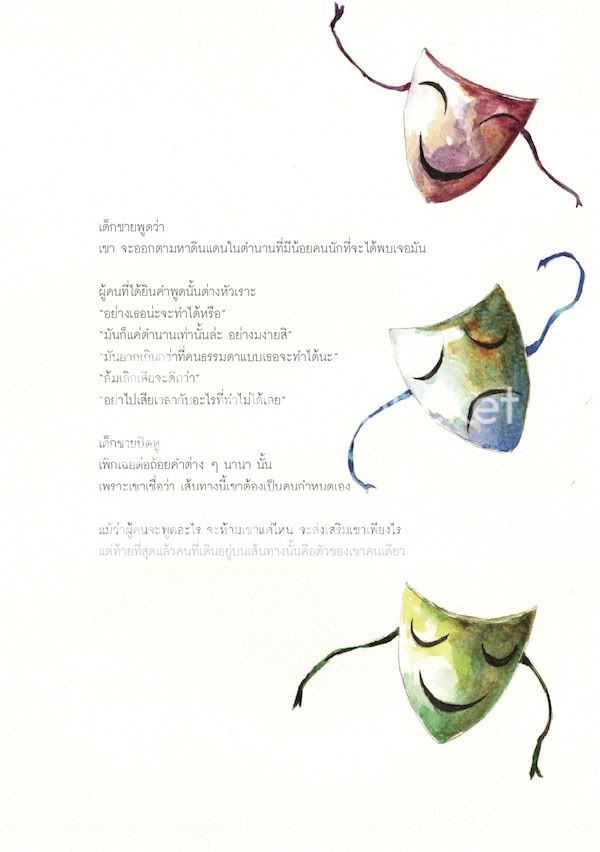 เด็กชายพูดว่า
เขา จะออกตามหาดินแดนในตำนานที่มีน้อยคนนักที่จะได้พบเจอมัน
ผู้คนที่ได้ยินคำพูดนั้นต่างหัวเราะ
"อย่างเธอน่ะจะทำได้หรือ"
"มันก็แค่ตำนานเท่านั้นล่ะ อย่างมงายสิ"
"มันยากเกินกว่าที่คนธรรมดาแบบเธอจะทำได้นะ"
"ล้มเลิกเสียจะดีกว่า"
"อย่าไปเสียเวลากับอะไรที่ทำไม่ได้เลย"
et
เด็กชายปิดหู
เพิกเฉยต่อถ้อยคำต่าง ๆ นานา นั้น
เพราะเขาเชื่อว่า เส้นทางนี้เขาต้องเป็นคนกำหนดเอง
แม้ว่าผู้คนจะพูดอะไร จะห้ามเขาแค่ไหน จะส่งเสริมเขาเพียงไร
แต่ท้ายที่สุดแล้วคนที่เดินอยู่บนเส้นทางนั้นคือตัวของเขาคนเดียว